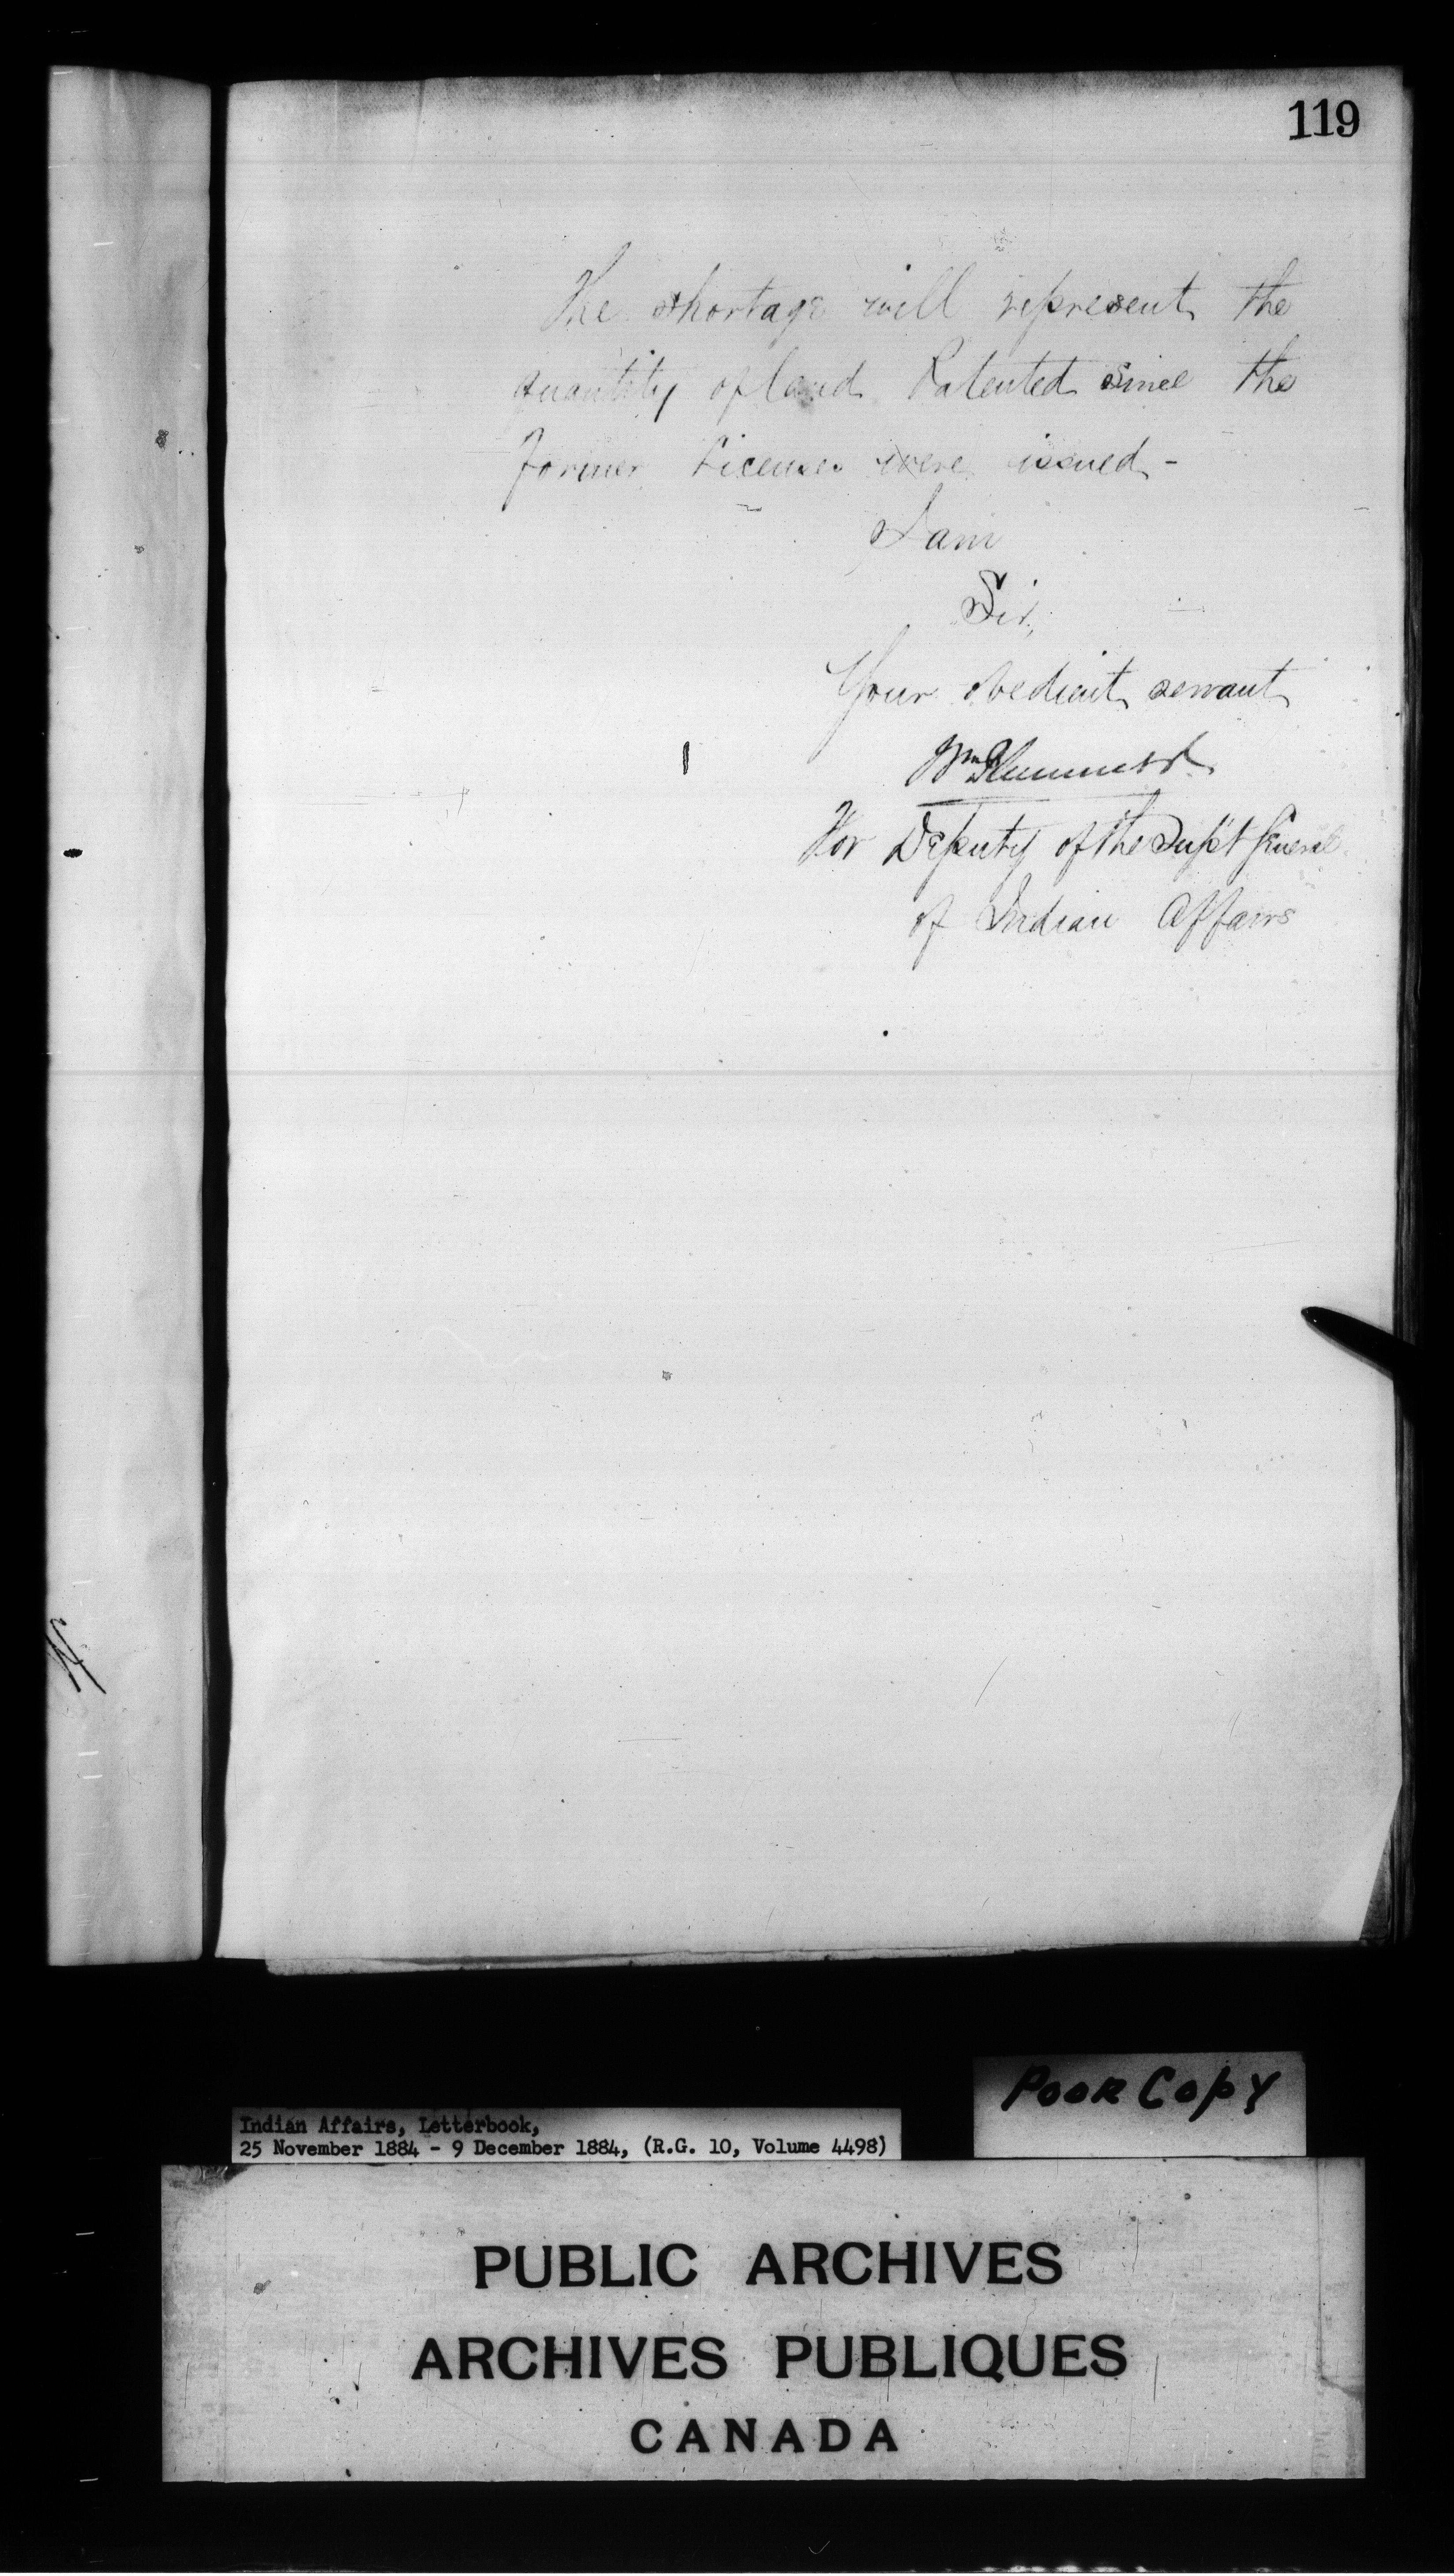 119
The shortage will represent the
quantity of land Patented since the
former Licenses were issued -
I am
Sir,
Your obedient servant
Wm Plummer
For Deputy of the Supt General
of Indian Affairs
Poor Copy
Indian Affairs, Letterbook,
25 November 1884 - 9 December 1884, (R.G. 10, Volume 4498)
PUBLIC ARCHIVES
ARCHIVES PUBLIQUES
CANADA